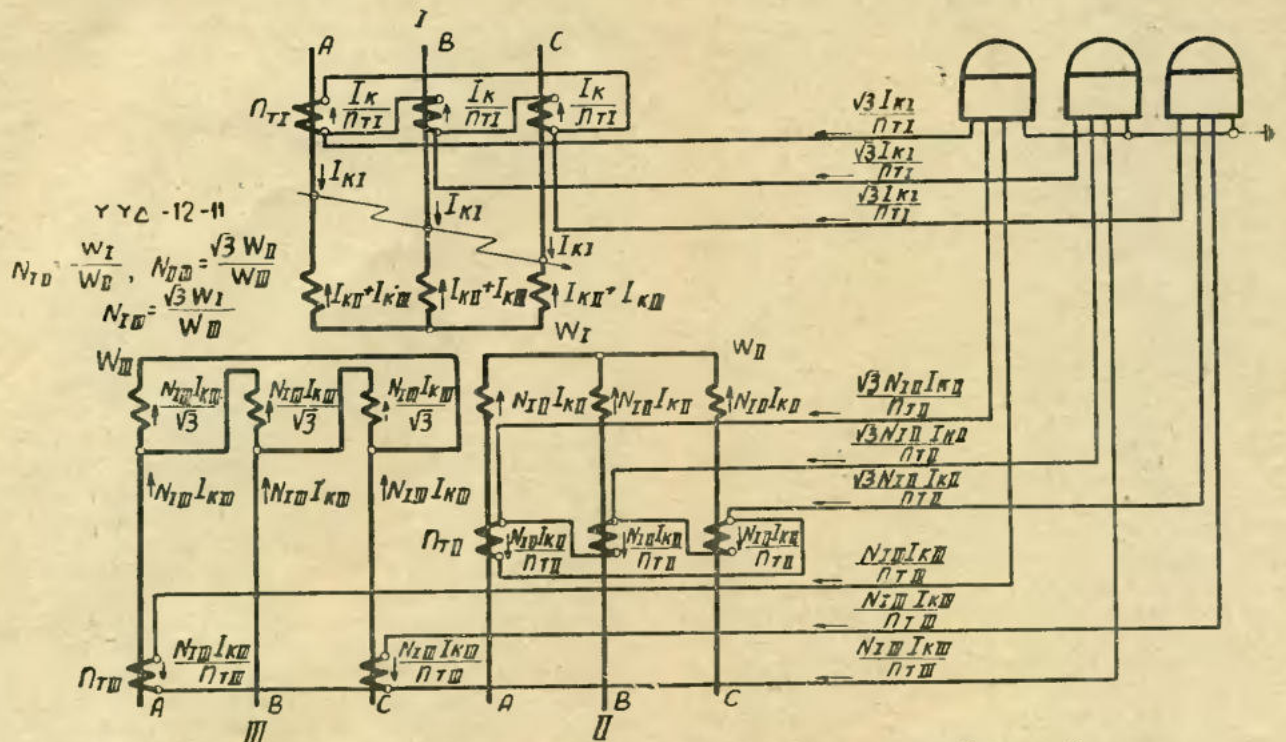 I
A B C
n_TI
I_K/n_TI I_K/n_TI I_K/n_TI
√3 I_KI/n_TI
√3 I_KI/n_TI
√3 I_KI/n_TI
I_KI
I_KI
I_KI
Y Y Δ -12-11
N_III = W_I/W_II, N_IIIII = √3 W_II/W_III
N_IIII = √3 W_I/W_III
I_KII + I_KIII I_KII + I_KIII I_KII + I_KIII
W_I
W_III W_II
N_IIII I_KIII/√3 N_IIII I_KIII/√3 N_IIII I_KIII/√3
N_III I_KII N_III I_KII N_III I_KII
√3 N_III I_KII/n_TII
√3 N_III I_KII/n_TII
√3 N_III I_KII/n_TII
N_IIII I_KIII N_IIII I_KIII N_IIII I_KIII
n_TII
N_III I_KII/n_TII N_III I_KII/n_TII N_III I_KII/n_TII
N_IIII I_KIII/n_TIII
N_IIII I_KIII/n_TIII
N_IIII I_KIII/n_TIII
n_TIII
N_IIII I_KIII/n_TIII N_IIII I_KIII/n_TIII
A B C A B C
III II